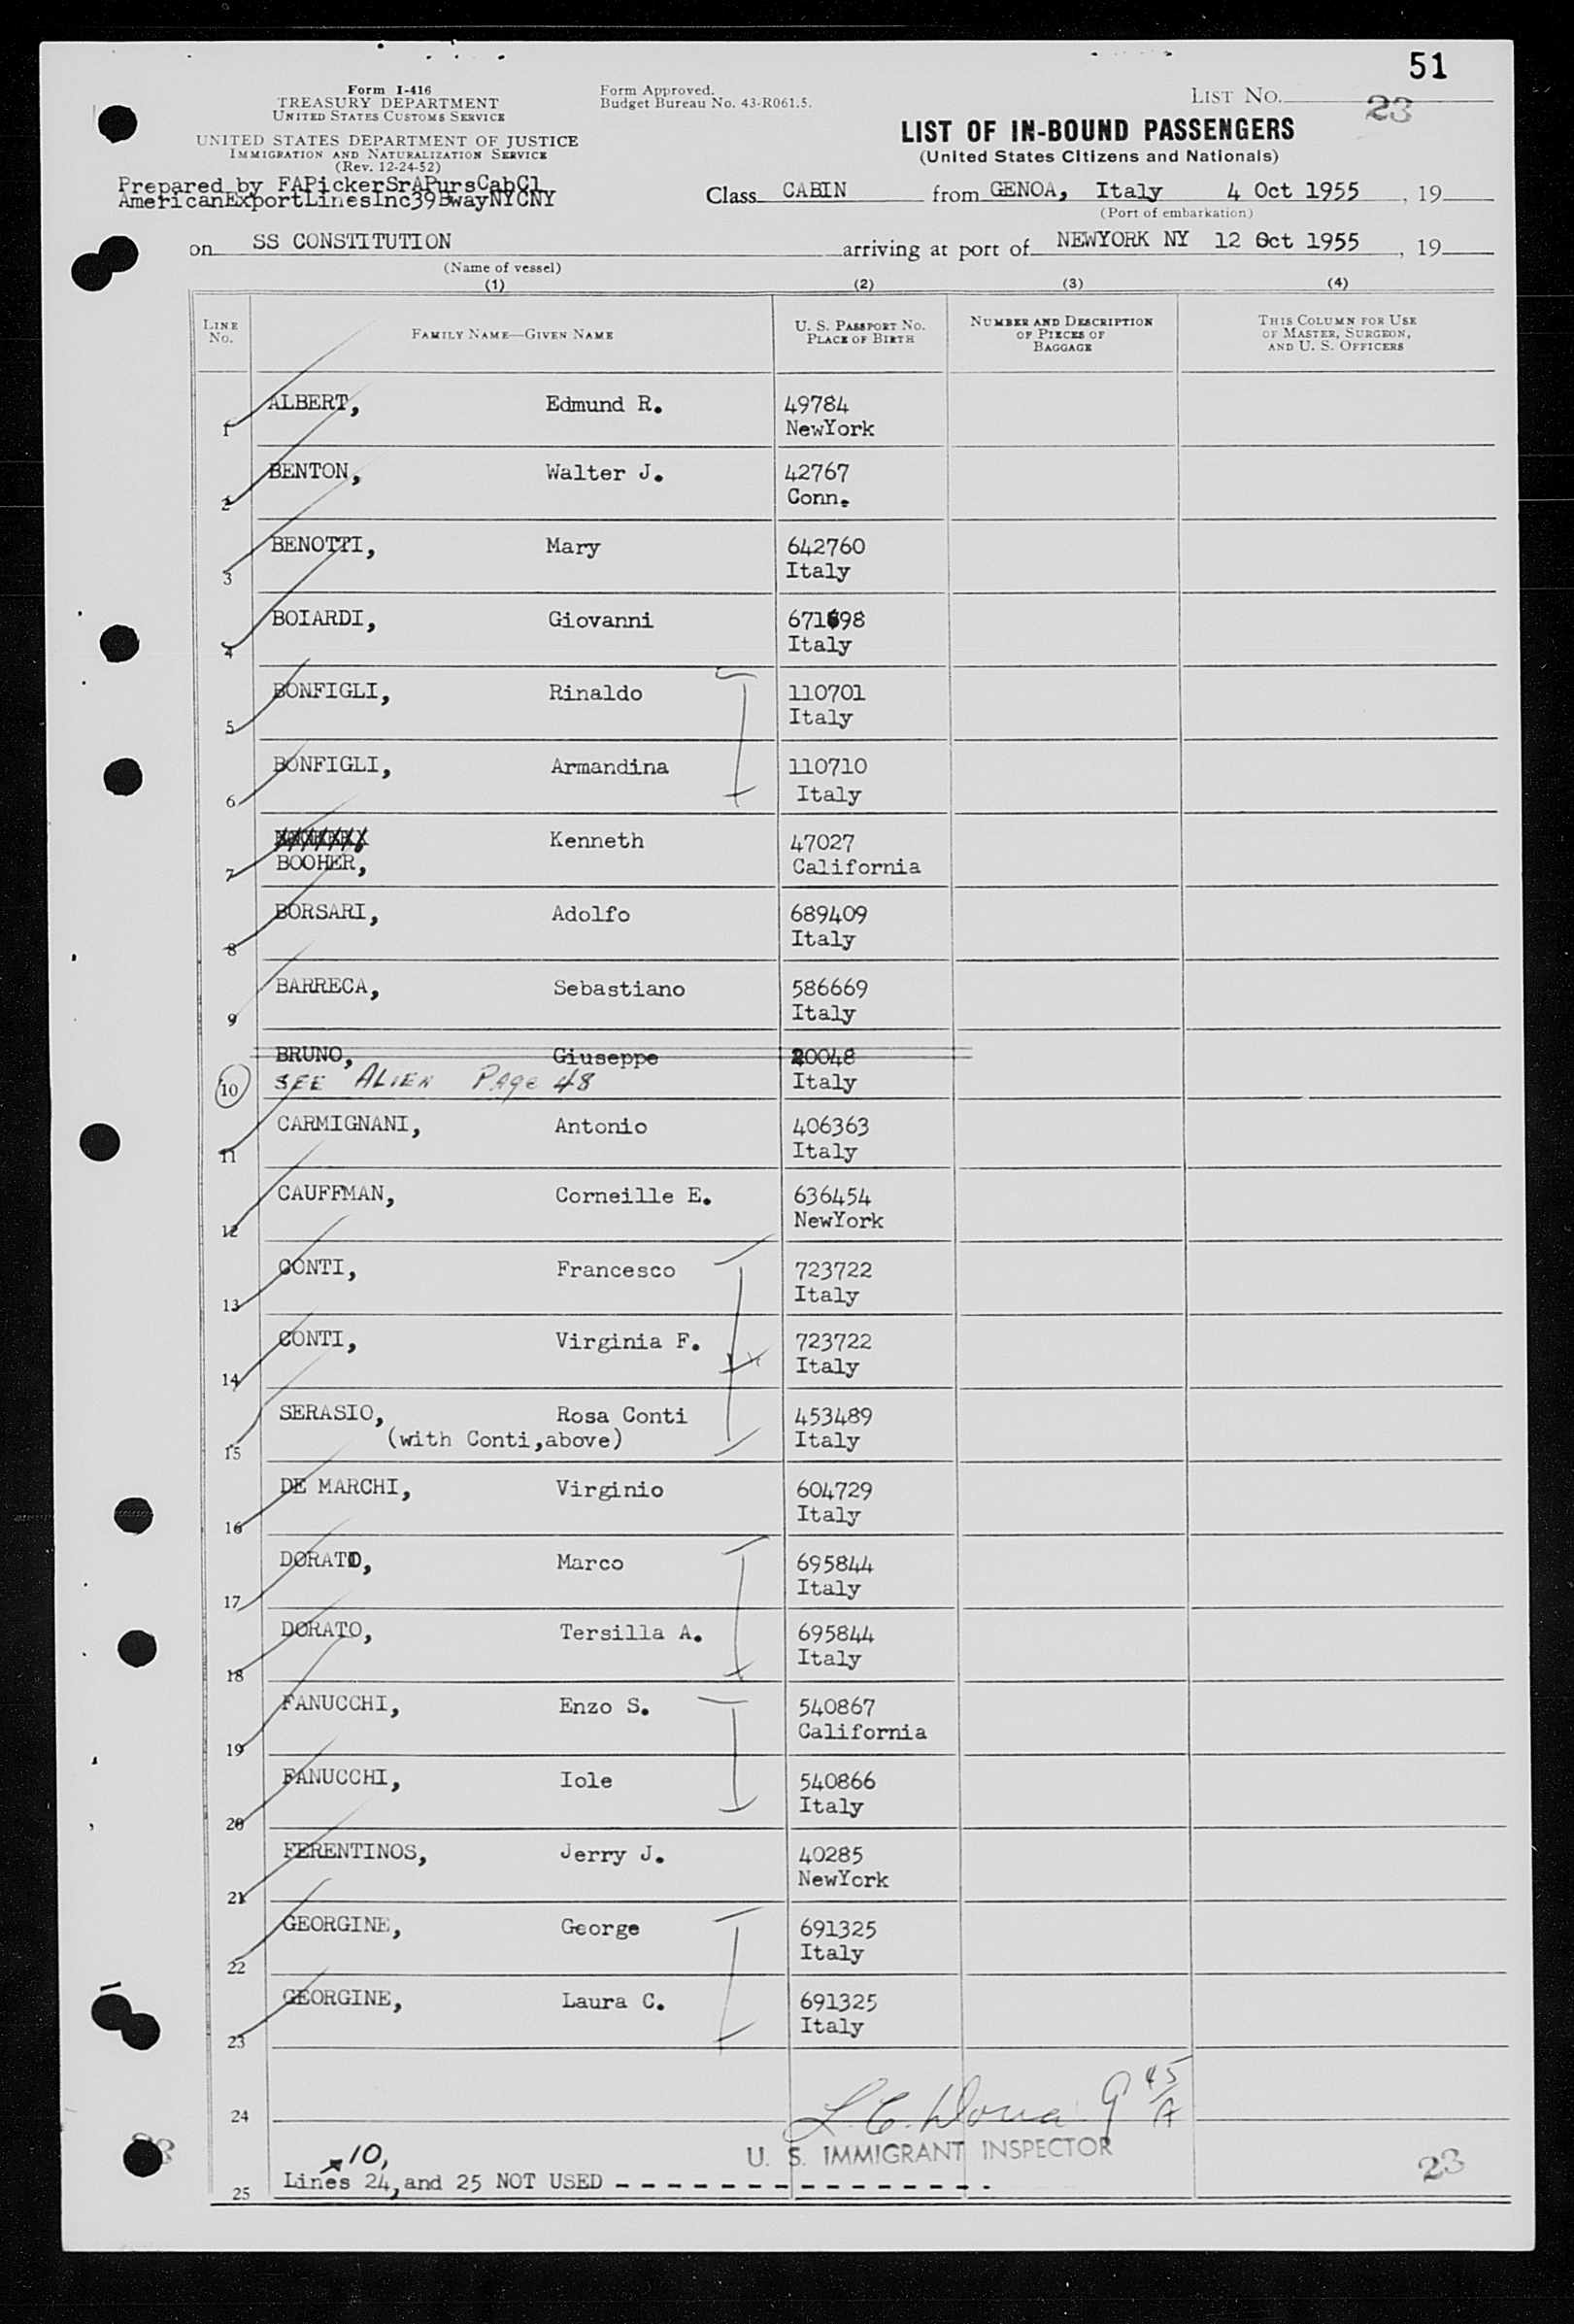 51
Form I-416
TREASURY DEPARTMENT
UNITED STATES CUSTOMS SERVICE
Form Approved.
Budget Bureau No. 43-R061.5.
LIST NO. 23
UNITED STATES DEPARTMENT OF JUSTICE
IMMIGRATION AND NATURALIZATION SERVICE
(Rev. 12-24-52)
LIST OF IN-BOUND PASSENGERS
(United States Citizens and Nationals)
Prepared by FAPickerSrAPursCabCl
AmericanExportLinesInc39BwayNYCNY
Class CABIN from GENOA, Italy 4 Oct 1955, 19
(Port of embarkation)
on SS CONSTITUTION arriving at port of NEWYORK NY 12 Oct 1955, 19
(Name of vessel)
(1) (2) (3) (4)
LINE NO. FAMILY NAME—GIVEN NAME U. S. PASSPORT NO. PLACE OF BIRTH NUMBER AND DESCRIPTION OF PIECES OF BAGGAGE THIS COLUMN FOR USE OF MASTER, SURGEON, AND U. S. OFFICERS
ALBERT, Edmund R. 49784
1 NewYork
BENTON, Walter J. 42767
2 Conn.
BENOTTI, Mary 642760
3 Italy
BOIARDI, Giovanni 671698
4 Italy
BONFIGLI, Rinaldo 110701
5 Italy
BONFIGLI, Armandina 110710
6 Italy
Kenneth 47027
7 BOOHER, California
BORSARI, Adolfo 689409
8 Italy
BARRECA, Sebastiano 586669
9 Italy
BRUNO, Giuseppe 20048
10 SEE ALIEN Page 48 Italy
CARMIGNANI, Antonio 406363
11 Italy
CAUFFMAN, Corneille E. 636454
12 NewYork
CONTI, Francesco 723722
13 Italy
CONTI, Virginia F. 723722
14 Italy
SERASIO, Rosa Conti 453489
15 (with Conti,above) Italy
DE MARCHI, Virginio 604729
16 Italy
DORATO, Marco 695844
17 Italy
DORATO, Tersilla A. 695844
18 Italy
FANUCCHI, Enzo S. 540867
19 California
FANUCCHI, Iole 540866
20 Italy
FERENTINOS, Jerry J. 40285
21 NewYork
GEORGINE, George 691325
22 Italy
GEORGINE, Laura C. 691325
23 Italy
24
U. S. IMMIGRANT INSPECTOR
10,
23
25 Lines 24,and 25 NOT USED - - - - - - - - - - - - - - -